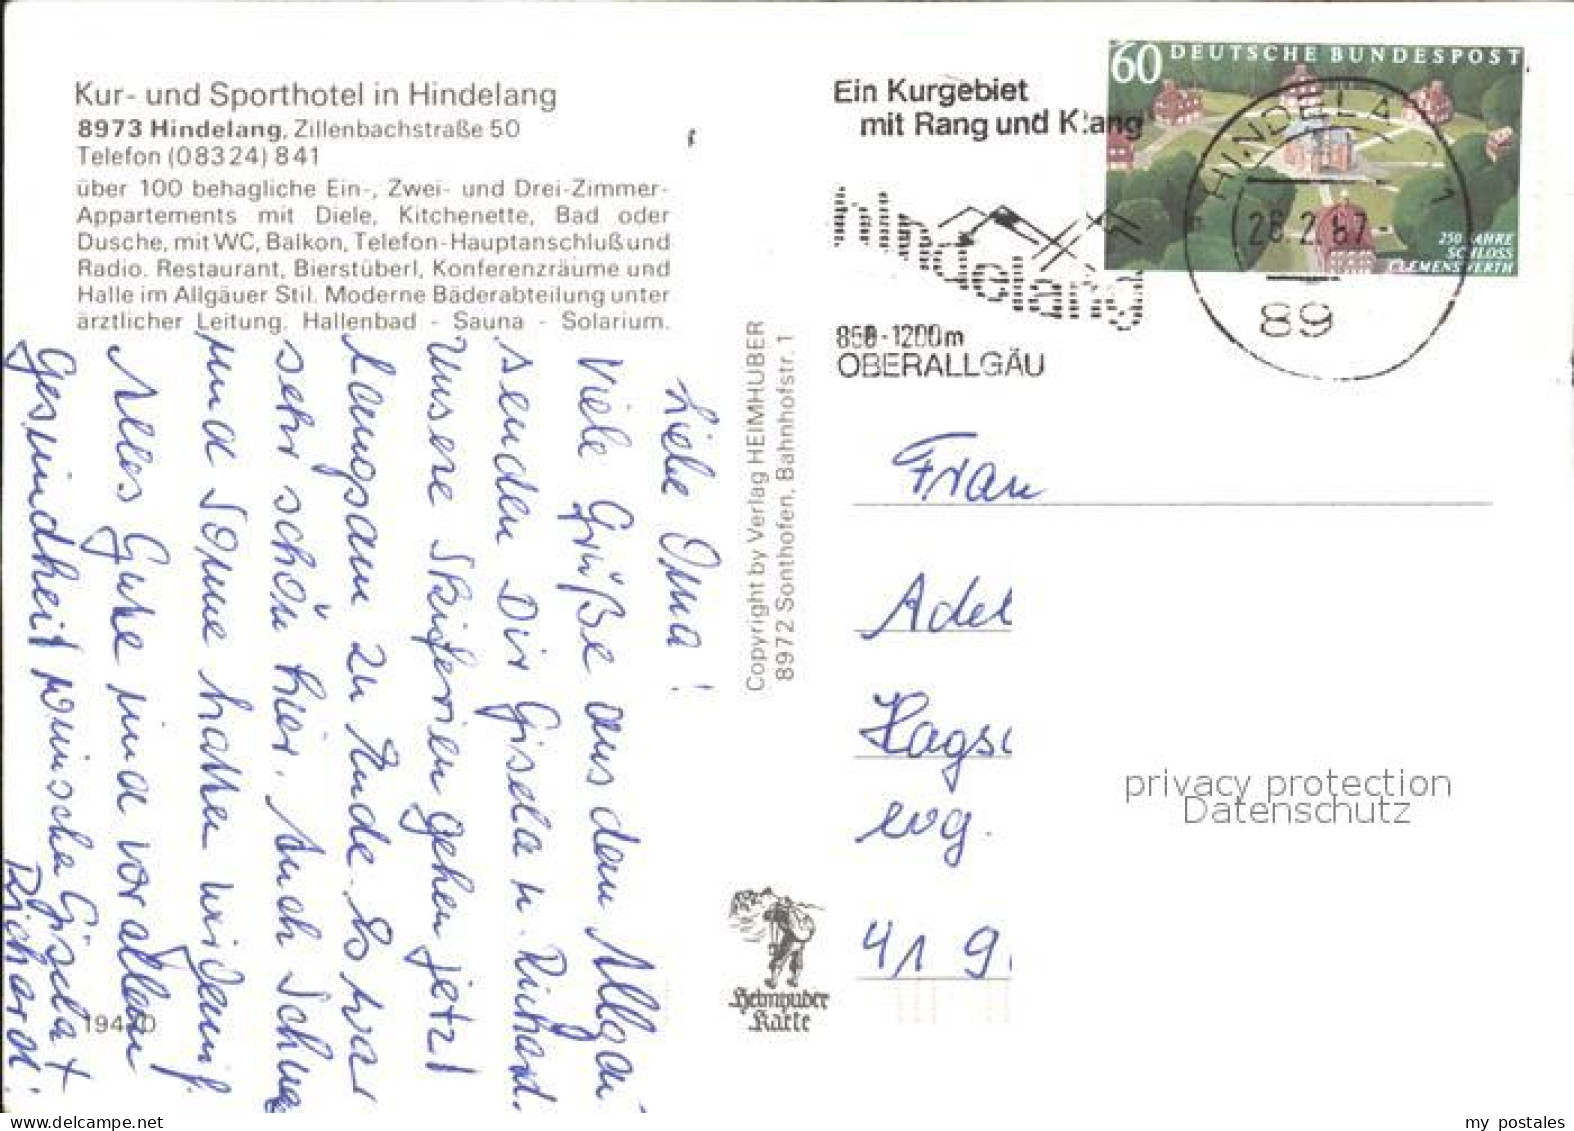 Kur- und Sporthotel in Hindelang
8973 Hindelang, Zillenbachstraße 50
Telefon (08324) 841
über 100 behagliche Ein-, Zwei- und Drei-Zimmer-
Appartements mit Diele, Kitchenette, Bad oder
Dusche, mit WC, Balkon, Telefon-Hauptanschluß und
Radio. Restaurant, Bierstüberl, Konferenzräume und
Halle im Allgäuer Stil. Moderne Bäderabteilung unter
ärztlicher Leitung. Hallenbad - Sauna - Solarium.
Liebe Oma!
Viele Grüße aus dem Allgäu
senden Dir Gisela u. Richard.
Unsere Skiferien gehen jetzt
langsam zu Ende. Es war
sehr schön hier. Auch Schnee
und Sonne hatten wir genug.
Alles Gute und vor allem
Gesundheit wünscht Gisela +
Richard.
194 0
Copyright by Verlag HEIMHUBER
8972 Sonthofen, Bahnhofstr. 1
Heimhuber
Karte
Ein Kurgebiet
mit Rang und Klang
Hindelang
850-1200m
OBERALLGÄU
60 DEUTSCHE BUNDESPOST
250 JAHRE
SCHLOSS
CLEMENSWERTH
HINDELANG 1
26.2.87-
89
Frau
Adel
Hags
evg.
41 9
privacy protection
Datenschutz
www.delcampe.net
my postales